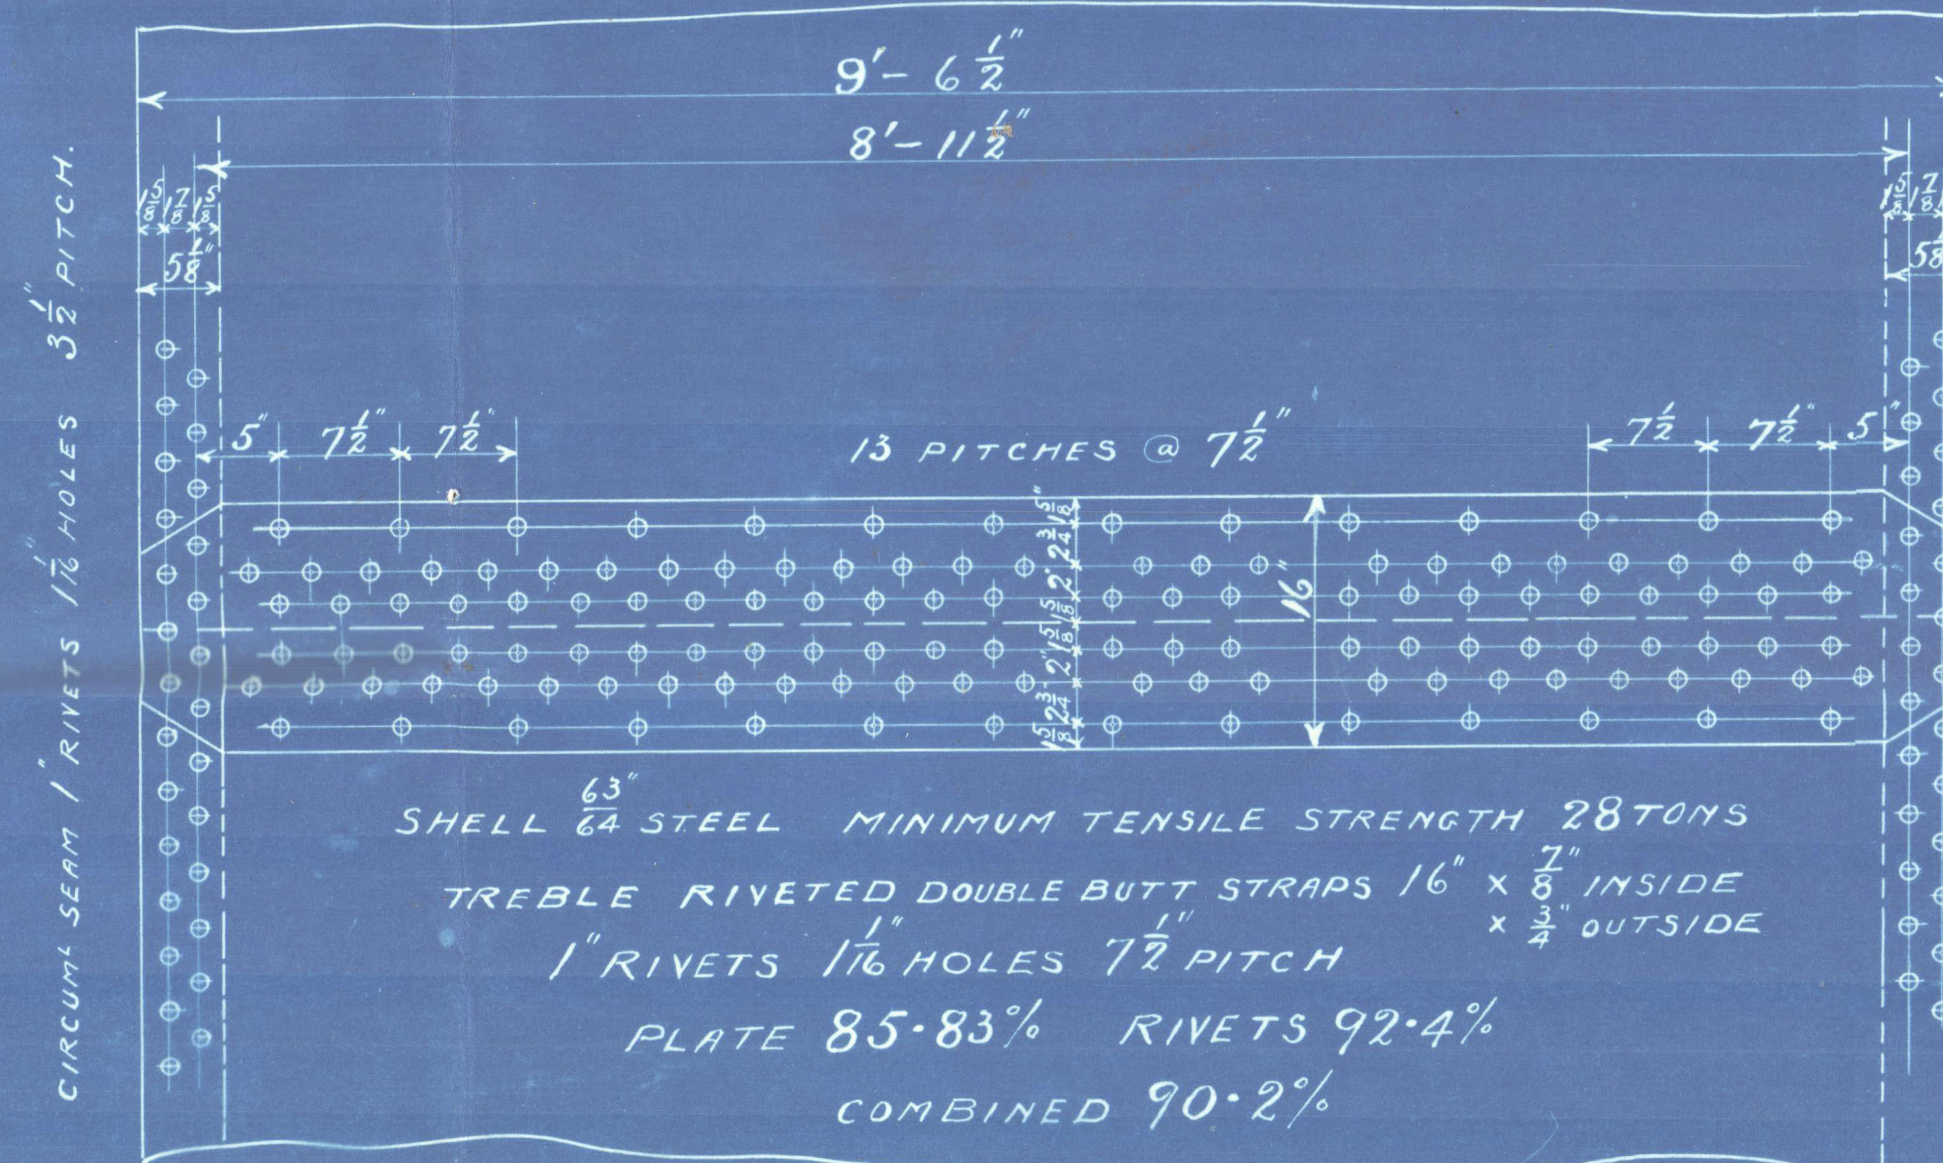 9'- 6 1/2"
8'- 11 1/2"
1 5/8 1 7/8 1 5/8
5 1/8"
1 5/8 1 7/8
5 1/8
CIRCUML SEAM 1" RIVETS 1 1/16" HOLES 3 1/2" PITCH.
5" 7 1/2" 7 1/2"
13 PITCHES @ 7 1/2"
7 1/2 7 1/2" 5"
1 5/8" 2 3/4 2" 1 5/8 1 5/8 2" 2 3/4 1 5/8
16"
SHELL 63/64" STEEL MINIMUM TENSILE STRENGTH 28 TONS
TREBLE RIVETED DOUBLE BUTT STRAPS 16" x 7/8" INSIDE
x 3/4" OUTSIDE
1" RIVETS 1 1/16" HOLES 7 1/2" PITCH
PLATE 85·83% RIVETS 92·4%
COMBINED 90·2%